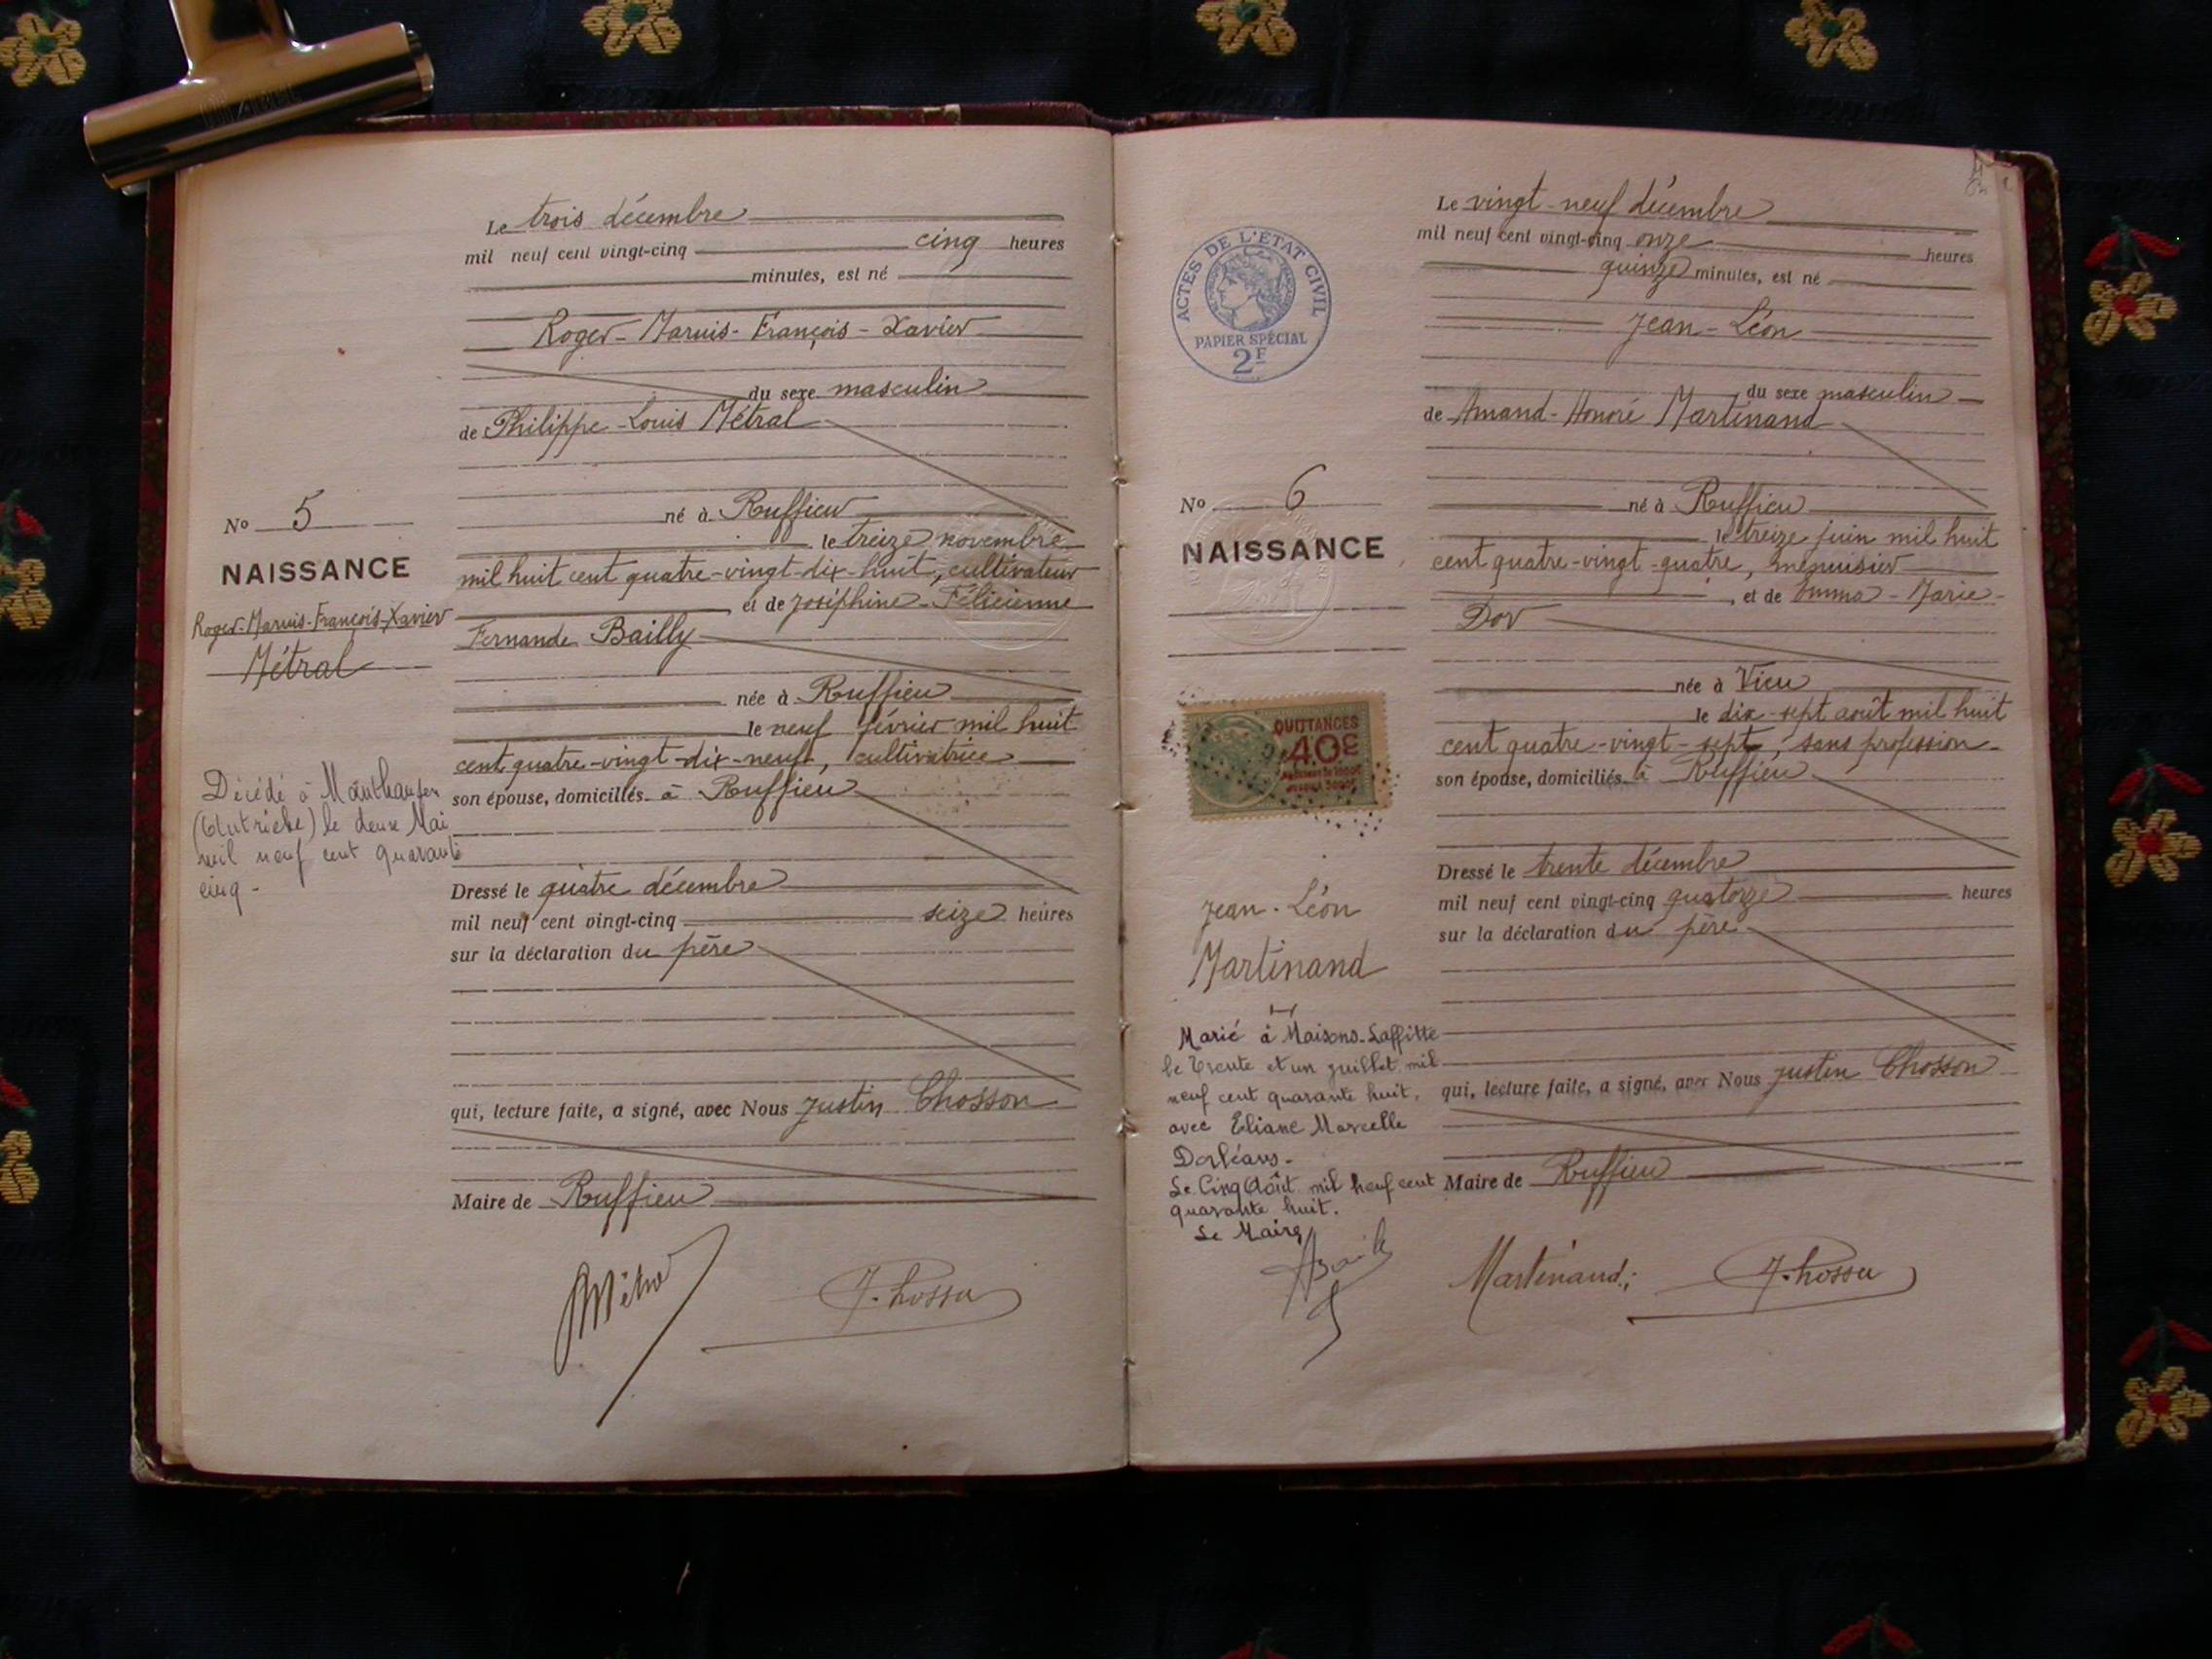 Le trois décembre
mil neuf cent vingt-cinq cinq heures
minutes, est né
Roger-Marius-François-Xavier
du sexe masculin
de Philippe-Louis Métral
né à Ruffieu
le treize novembre
mil huit cent quatre-vingt-dix-huit, cultivateur
et de Joséphine-Félicienne
Fernande Bailly
née à Ruffieu
le neuf février mil huit
cent quatre-vingt-dix-neuf, cultivatrice
son épouse, domiciliés à Ruffieu
Dressé le quatre décembre
mil neuf cent vingt-cinq seize heures
sur la déclaration du père
qui, lecture faite, a signé, avec Nous Justin Chosson
Maire de Ruffieu
No 5
NAISSANCE
Roger-Marius-François-Xavier
Métral
Décédé à Mauthausen
(Autriche) le deux Mai
mil neuf cent quarante
cinq -
Le vingt-neuf décembre
mil neuf cent vingt-cinq onze heures
quinze minutes, est né
Jean-Léon
du sexe masculin
de Amand-Honoré Martinand
né à Ruffieu
le treize juin mil huit
cent quatre-vingt-quatre, menuisier
, et de Emma-Marie-
Dov
née à Vieu
le dix-sept août mil huit
cent quatre-vingt-sept, sans profession
son épouse, domiciliés à Ruffieu
Dressé le trente décembre
mil neuf cent vingt-cinq quatorze heures
sur la déclaration du père
qui, lecture faite, a signé, avec Nous Justin Chosson
Maire de Ruffieu
Martinand
ACTES DE L'ÉTAT CIVIL
PAPIER SPÉCIAL
2F
No 6
NAISSANCE
QUITTANCES
40c
Jean-Léon
Martinand
Marié à Maisons-Laffitte
le trente et un juillet mil
neuf cent quarante huit,
avec Eliane Marcelle
Dorléans.
Le Cinq Août mil neuf cent
quarante huit.
Le Maire